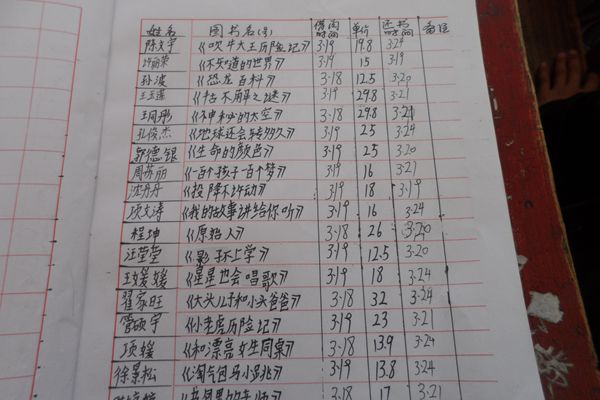 姓名 图书名(号) 借阅时间 单价 还书时间 备注
陈文宇 《吹牛大王历险记》 3·19 19.8 3·24
许丽荣 《不知道的世界》 3·19 15 3·19
孙波 《恐龙百科》 3·18 12.5 3·20
《千古不解之谜》 3·19 29.8 3·21
《神秘的太空》 3·18 29.8 3·21
孔俊杰 《地球还会转多久》 3·19 25 3·24
郭德银 《生命的颜色》 3·19 25 3·20
周苏丽 《一百个孩子一百个梦》 3·19 16 3·21
沈丹丹 《投降不许动》 3·19 18 3·19
项文涛 《我的故事讲给你听》 3·19 16 3·24
程坤 《原始人》 3·18 26 3·20
汪莹莹 《影子不上学》 3·19 12.5 3·20
王媛媛 《星星也会唱歌》 3·19 18 3·24
翟家旺 《大头儿子和小头爸爸》 3·18 32 3·24
管硕宇 《小老虎历险记》 3·19 23 3·21
项媛 《和漂亮女生同桌》 3·18 13.9 3·24
徐景松 《淘气包马小跳》 3·19 13.8 3·24
3·18 17 3·21